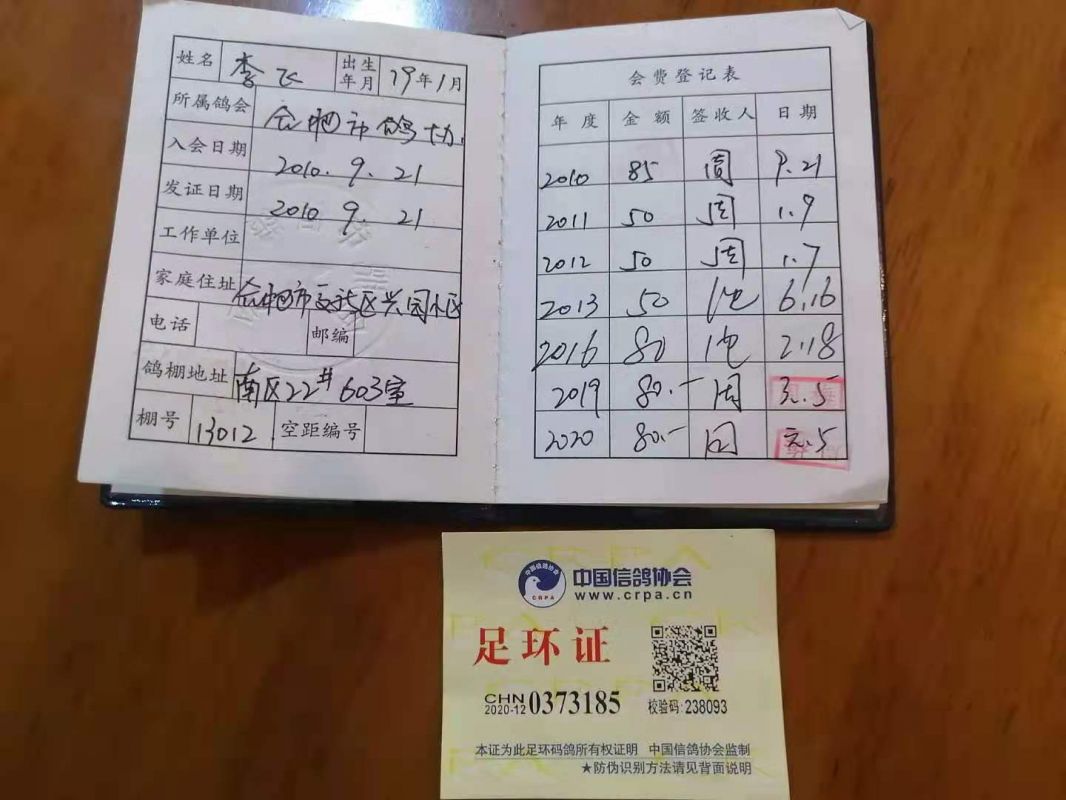 姓名 李飞 出生年月 79年1月
所属鸽会 合肥市鸽协
入会日期 2010.9.21
发证日期 2010 9.21
工作单位
家庭住址 合肥市 区兴园小区
电话 邮编
鸽棚地址 南区22#603室
棚号 13012 空距编号
会费登记表
年度 金额 签收人 日期
2010 85 周 9.21
2011 50 周 1.9
2012 50 周 1.7
2013 50 6.16
2016 80 2.18
2019 80.- 周 元.5
2020 80.- 周 元.5
中国信鸽协会
CRPA
中国信鸽协会
www.crpa.cn
足环证
CHN
2020-12 0373185
校验码:238093
本证为此足环码鸽所有权证明 中国信鸽协会监制
★防伪识别方法请见背面说明